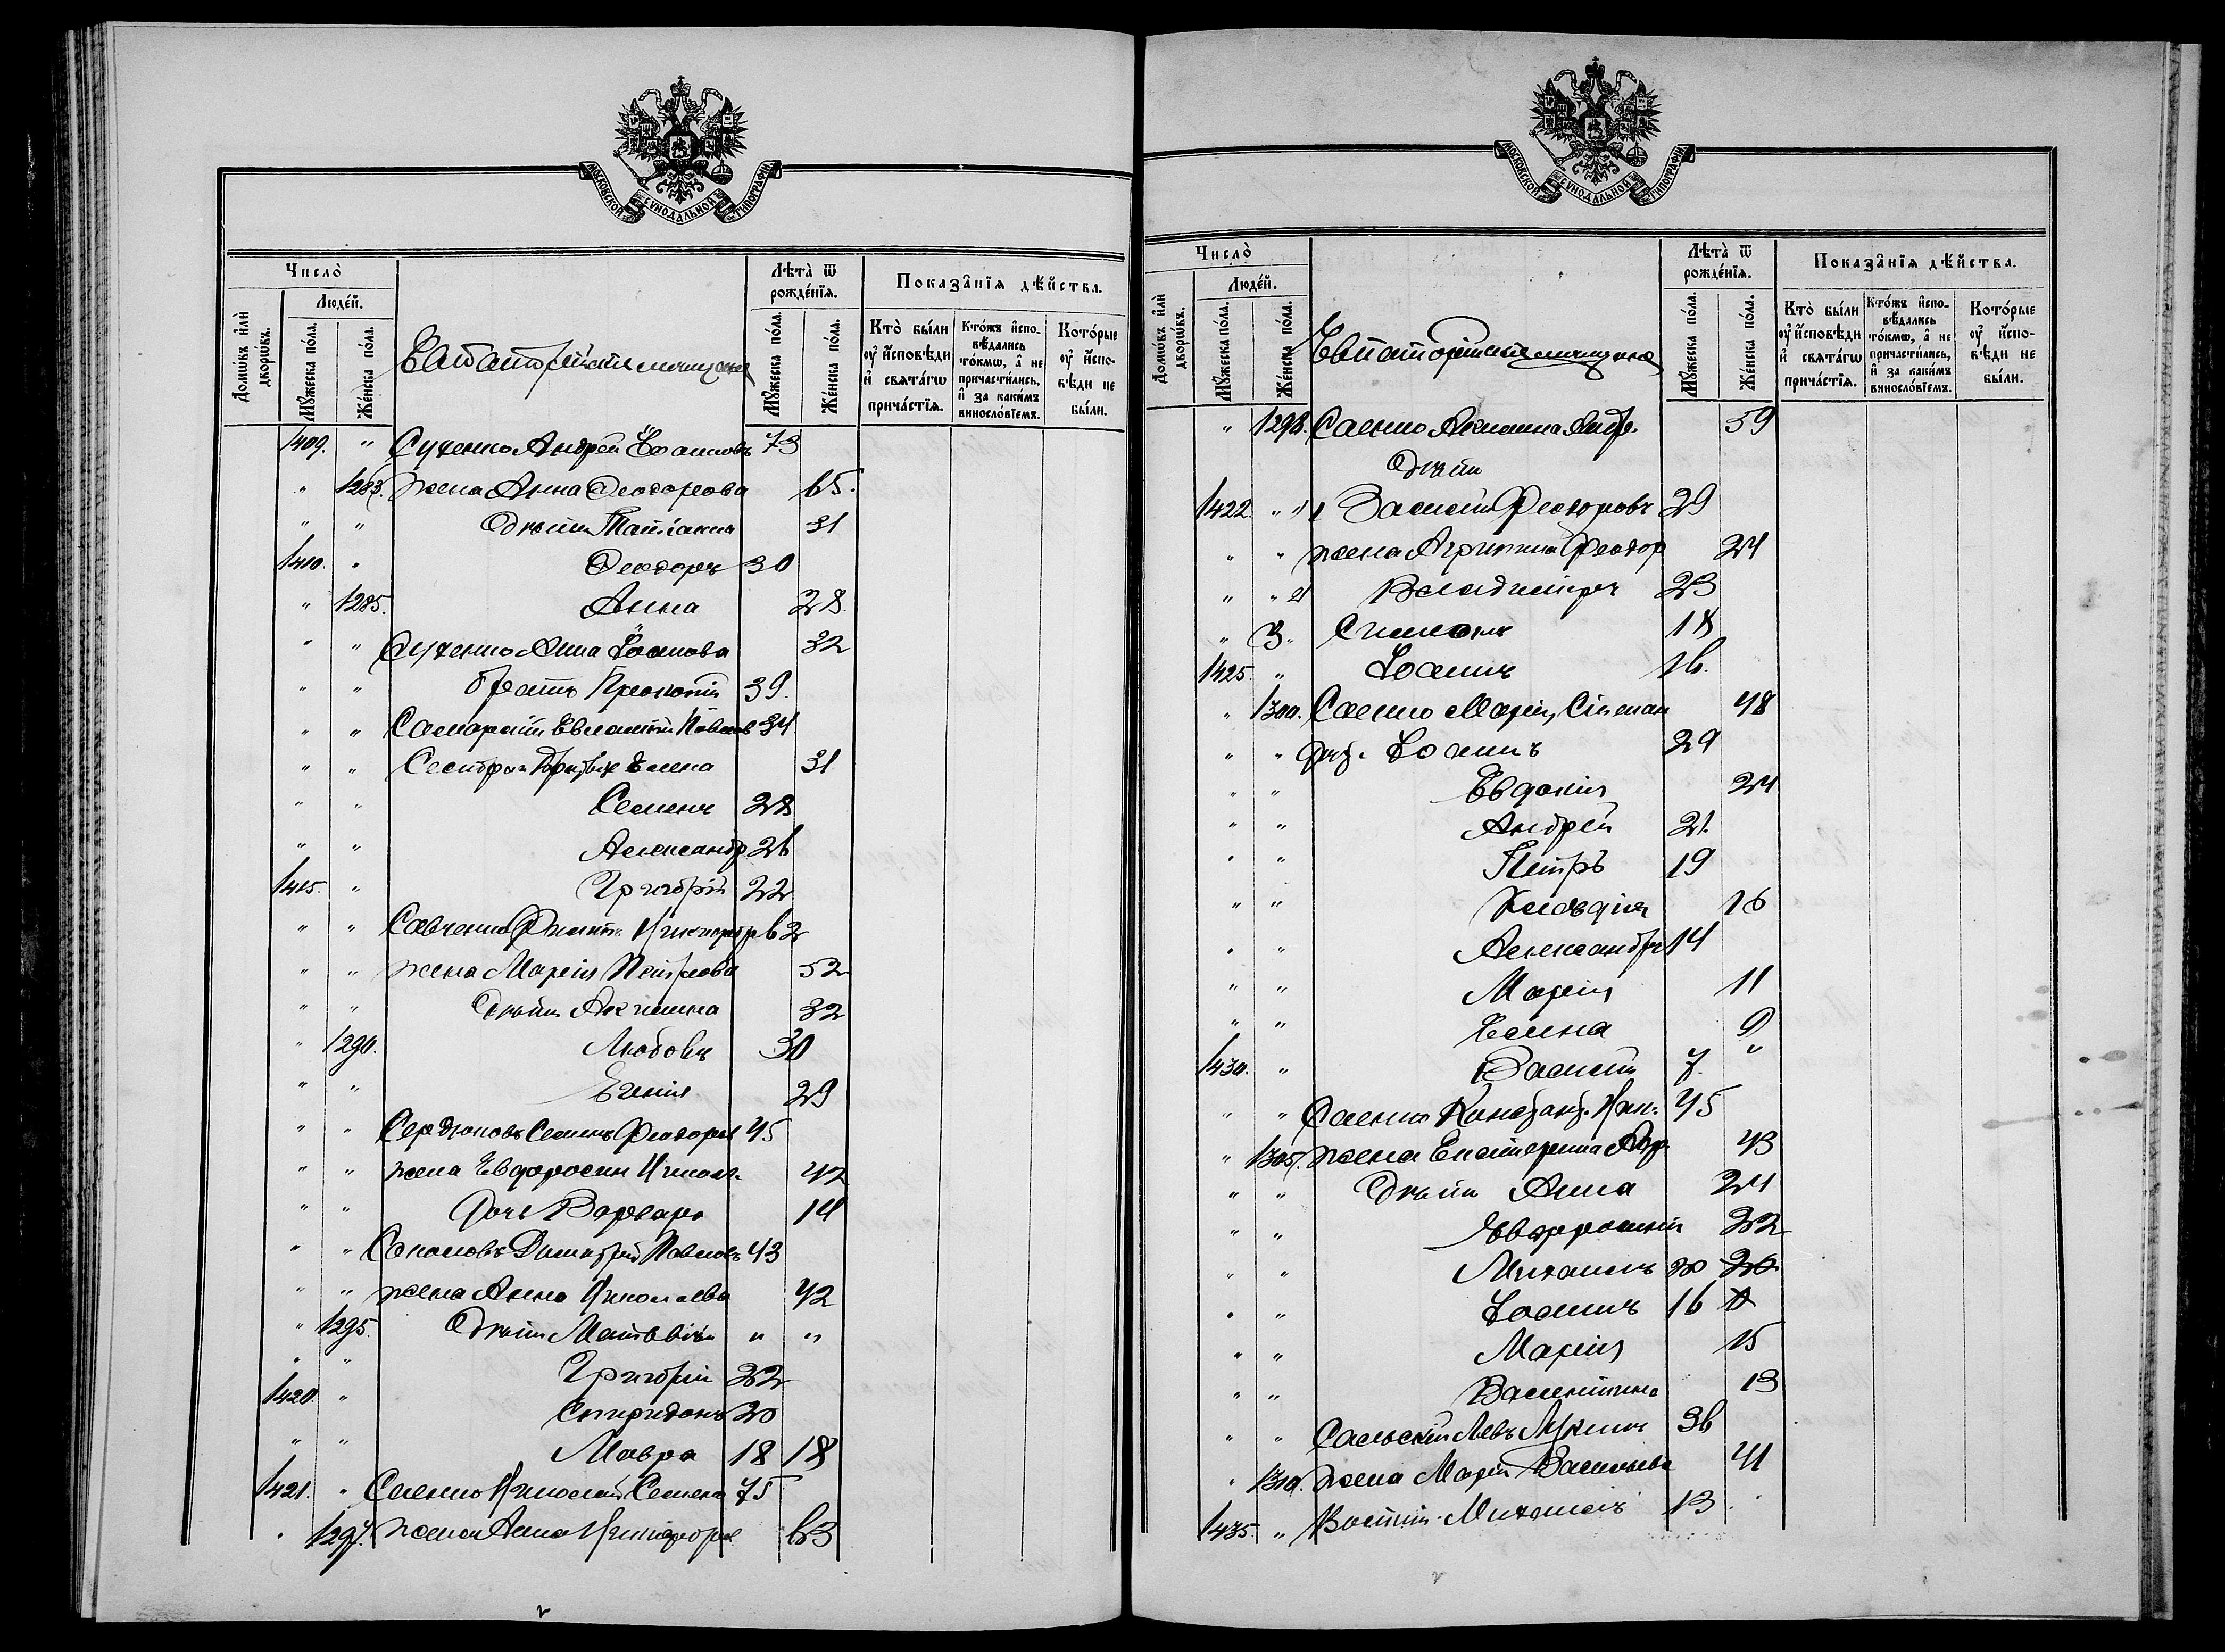 МОСКОВСКОЙ СУНОДАЛЬНОЙ ТИПОГРАФІИ
Число̀
Домѡ́въ и҆лѝ дворѡ́въ.
Люде́й.
Мꙋ́жеска по́ла.
Же́нска по́ла.
Лѣ́та ѿ рожде́нїѧ.
Мꙋ́жеска по́ла.
Же́нска по́ла.
Показа̑нїѧ дѣ́йства.
Кто̀ бы́ли ᲂу҆ и҆́сповѣди и҆ свѧта́гѡ прича́стїѧ.
Кто́жъ и҆спо-вѣ́дались то́кмѡ, а҆ не причасти́лись, и҆ за каки́мъ винослѡ́вїемъ.
Кото́рые ᲂу҆ и҆́спо-вѣди не бы́ли.
Евпаторійскіе мѣщане
1409. " Сухенко Андрей Іоанновъ 73
" 1283. жена Анна Ѳеодорова 65.
" " Дѣти Татіана 31
1410. " Ѳеодоръ 30
" 1285. Анна 28.
" " Сухенко Анна Іоаннова 32
" " братъ Прокопій 39.
" " Самарскій Евлампій Павлов 34
" " Сестра Елена 31
" " Семенъ 28
" " Александр 26
1415. " Григорій 22
" " Савченко Никифор 62
" " жена Марія Петрова 52
" " Дѣти Акилина 32
" 1290. Любовь 30
" " Евгенія 29
" " Сердюковъ Семенъ Ѳеодоров 45
" " жена Евфросин Никол. 42
" " дочь Варвара 14
" " Соколовъ Димитрій Павловъ 43
" " жена Анна Николаева 42
" 1295. Дѣти " "
" " Григорій 22
1420. " Спиридонъ 20
" " Мавра 18 18
1421. " Саенко Николай Семено 75
" 1297. жена Анна Никифоров 63
МОСКОВСКОЙ СУНОДАЛЬНОЙ ТИПОГРАФІИ
Число̀
Домѡ́въ и҆лѝ дворѡ́въ.
Люде́й.
Мꙋ́жеска по́ла.
Же́нска по́ла.
Лѣ́та ѿ рожде́нїѧ.
Мꙋ́жеска по́ла.
Же́нска по́ла.
Показа̑нїѧ дѣ́йства.
Кто̀ бы́ли ᲂу҆ и҆́сповѣди и҆ свѧта́гѡ прича́стїѧ.
Кто́жъ и҆спо-вѣ́дались то́кмѡ, а҆ не причасти́лись, и҆ за каки́мъ винослѡ́вїемъ.
Кото́рые ᲂу҆ и҆́спо-вѣди не бы́ли.
Евпаторійскіе мѣщане
" 1298. Саенко Акилина Андр. 59
Дѣти
1422. " 1 Василій Ѳеодоровъ 29
" " жена Агрипина Ѳеодор 24
" " 2 Владиміръ 23
" 3 " Симеонъ 18
1425. " Іоаннъ 16.
" 1300. Саенко Марія Стефан 48
" " Іоаннъ 29
" " Евдокія 24
" " Андрей 21
" " Петръ 19
" " Клавдія 16
" " Александръ 14
" " Марія 11
" " Елена 9
1430. " Василій 7. "
" " Саенко Констант. Ник. 45
" 1305. жена Екатерина Андр. 43
" " Дѣти Анна 24
" " Евфросинія 22
" " Михаилъ 20 20
" " Іоаннъ 16
" " Марія 15
" " Валентина 13
" " Сальскій Левъ 36
" 1310. жена Марія Васильева 41
1435. " Михаилъ 13 "